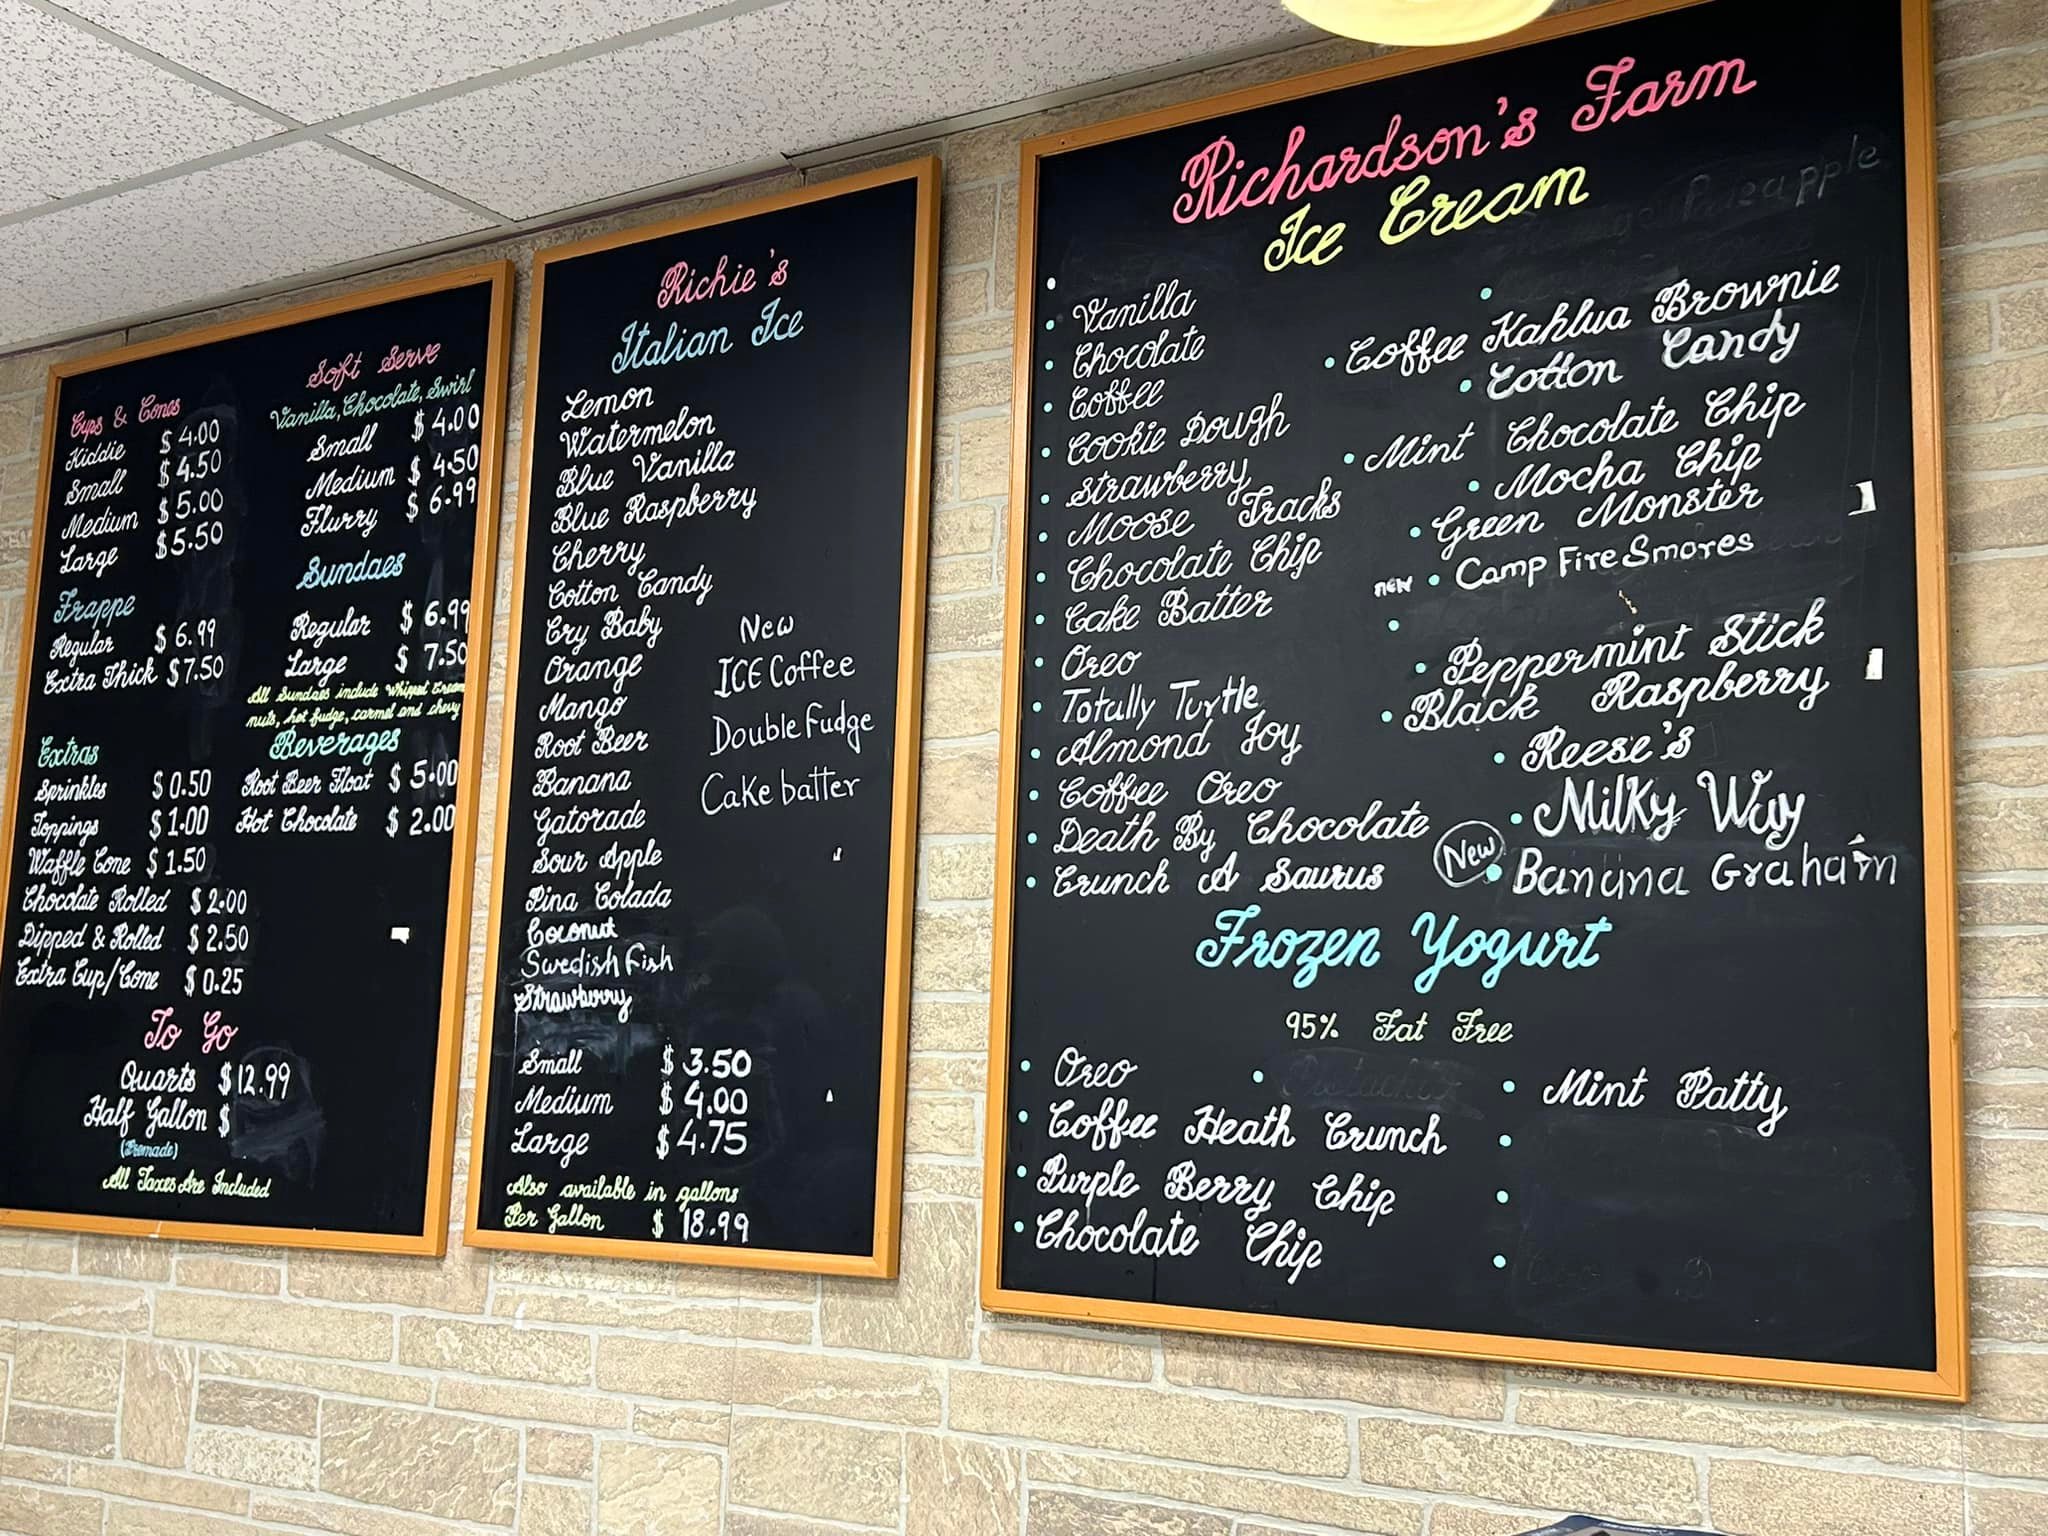 Cups & Cones
Kiddie $ 4.00
Small $ 4.50
Medium $ 5.00
Large $5.50
Frappe
Regular $ 6.99
Extra Thick $7.50
Extras
Sprinkles $ 0.50
Toppings $ 1.00
Waffle Cone $ 1.50
Chocolate Rolled $ 2.00
Dipped & Rolled $ 2.50
Extra Cup/Cone $ 0.25
Soft Serve
Vanilla, Chocolate, Swirl
Small $ 4.00
Medium $ 4.50
Flurry $ 6.99
Sundaes
Regular $ 6.99
Large $ 7.50
All Sundaes include Whipped Cream
nuts, hot fudge, carmel and cherry
Beverages
Root Beer Float $ 5.00
Hot Chocolate $ 2.00
To Go
Quarts $12.99
Half Gallon $
(Premade)
All Taxes Are Included
Richie's
Italian Ice
Lemon
Watermelon
Blue Vanilla
Blue Raspberry
Cherry
Cotton Candy
Cry Baby
Orange
Mango
Root Beer
Banana
Gatorade
Sour Apple
Pina Colada
Coconut
Swedish Fish
Strawberry
New
ICE Coffee
Double Fudge
Cake batter
Small $ 3.50
Medium $ 4.00
Large $ 4.75
Also available in gallons
Per Gallon $ 18.99
Richardson's Farm
Ice Cream
Vanilla
Chocolate
Coffee
Cookie Dough
Strawberry
Moose Tracks
Chocolate Chip
Cake Batter
Oreo
Totally Turtle
Almond Joy
Coffee Oreo
Death By Chocolate
Crunch A Saurus
Pineapple
Coffee Kahlua Brownie
Cotton Candy
Mint Chocolate Chip
Mocha Chip
Green Monster
new Camp Fire Smores
Peppermint Stick
Black Raspberry
Reese's
Milky Way
New Banana Graham
Frozen Yogurt
95% Fat Free
Oreo
Coffee Heath Crunch
Purple Berry Chip
Chocolate Chip
Pistachio
Mint Patty